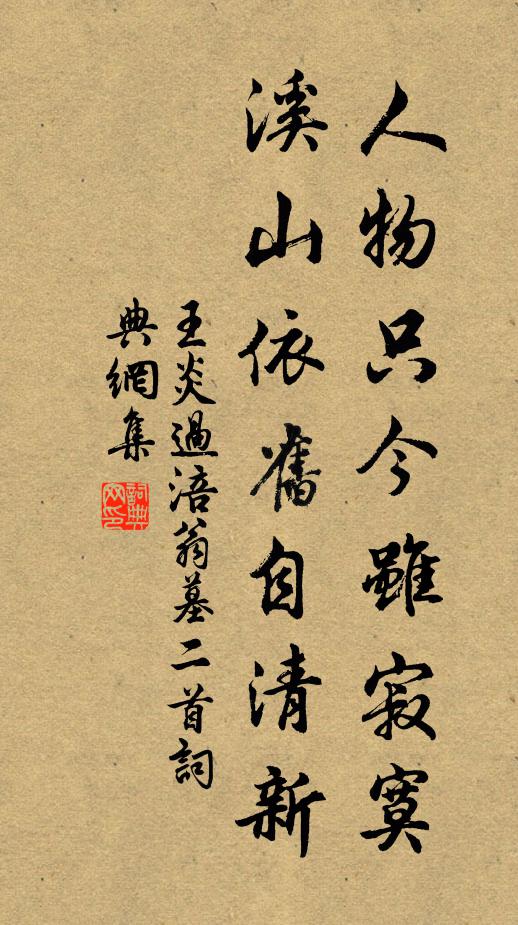 人物只今雖寂寞
溪山依舊自清新
王炎過涪翁墓二首詞
典網集
詞典網印